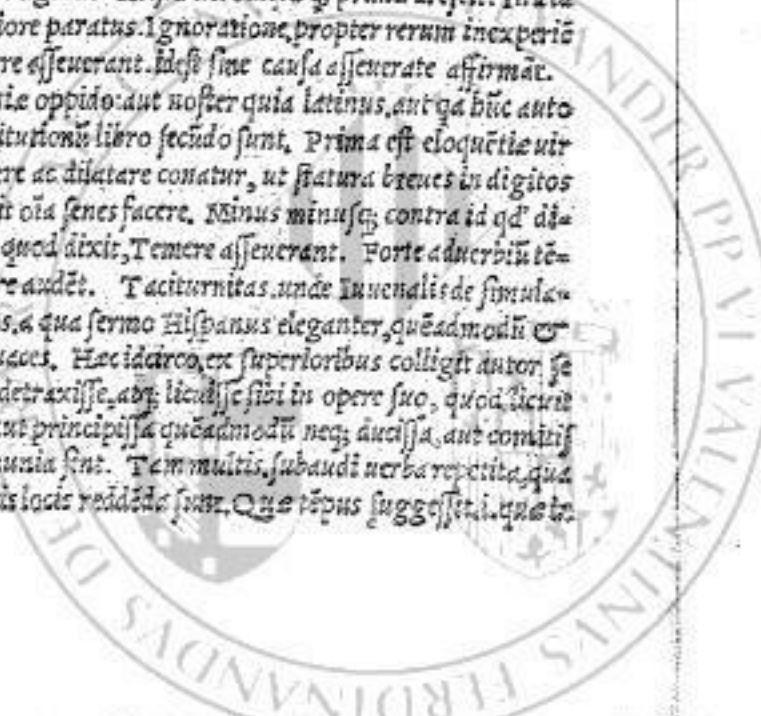 iore paratus. Ignoratione, propter rerum inexperiẽ
re aſſeuerant. ideſt ſine cauſa aſſeuerate affirmãt.
iæ oppido: aut noſter quia latinus, aut ꝗa hũc auto
itutionũ libro ſecũdo ſunt. Prima eſt eloquẽtiæ uir
ere ac dilatare conatur, ut ſtatura breues in digitos
it oĩa ſenes facere. Minus minuſq; contra id qd' di-
quod dixit, Temere aſſeuerant. Forte aduerbiũ tẽ-
re audẽt. Taciturnitas. unde Iuuenalis de ſimula-
s, a qua ſermo Hiſpanus eleganter, quẽadmodũ &
uaces. Hac idcirco, ex ſuperioribus colligit autor ſe
detraxiſſe, atq; licuiſſe ſibi in opere ſuo, quod licuit
ut principiſſa quẽadmodũ neq; duciſſa, aut comitiſ
unia ſint. Tam multis. ſubaudi uerba repetita, qua
is locis reddẽda ſunt. Quæ tẽpus ſuggeſſit. i. quæ in
ANDER PP VI VALENTINUS FERDINANDUS